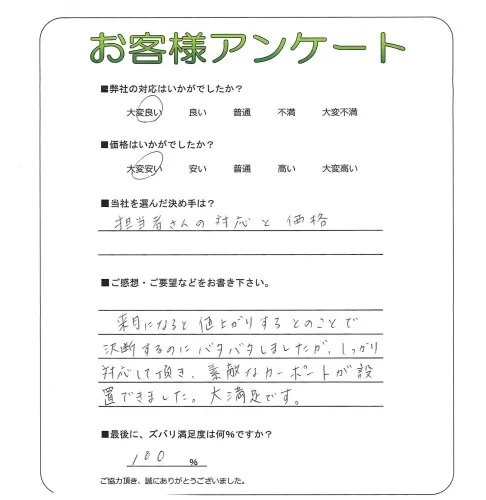 お客様アンケート
■弊社の対応はいかがでしたか？
大変良い 良い 普通 不満 大変不満
■価格はいかがでしたか？
大変安い 安い 普通 高い 大変高い
■当社を選んだ決め手は？
担当者さんの対応と価格
■ご感想・ご要望などをお書き下さい。
来月になると値上がりするとのことで
決断するのにバタバタしましたが、しっかり
対応して頂き、素敵なカーポートが設
置できました。大満足です。
■最後に、ズバリ満足度は何％ですか？
100 %
ご協力頂き、誠にありがとうございました。